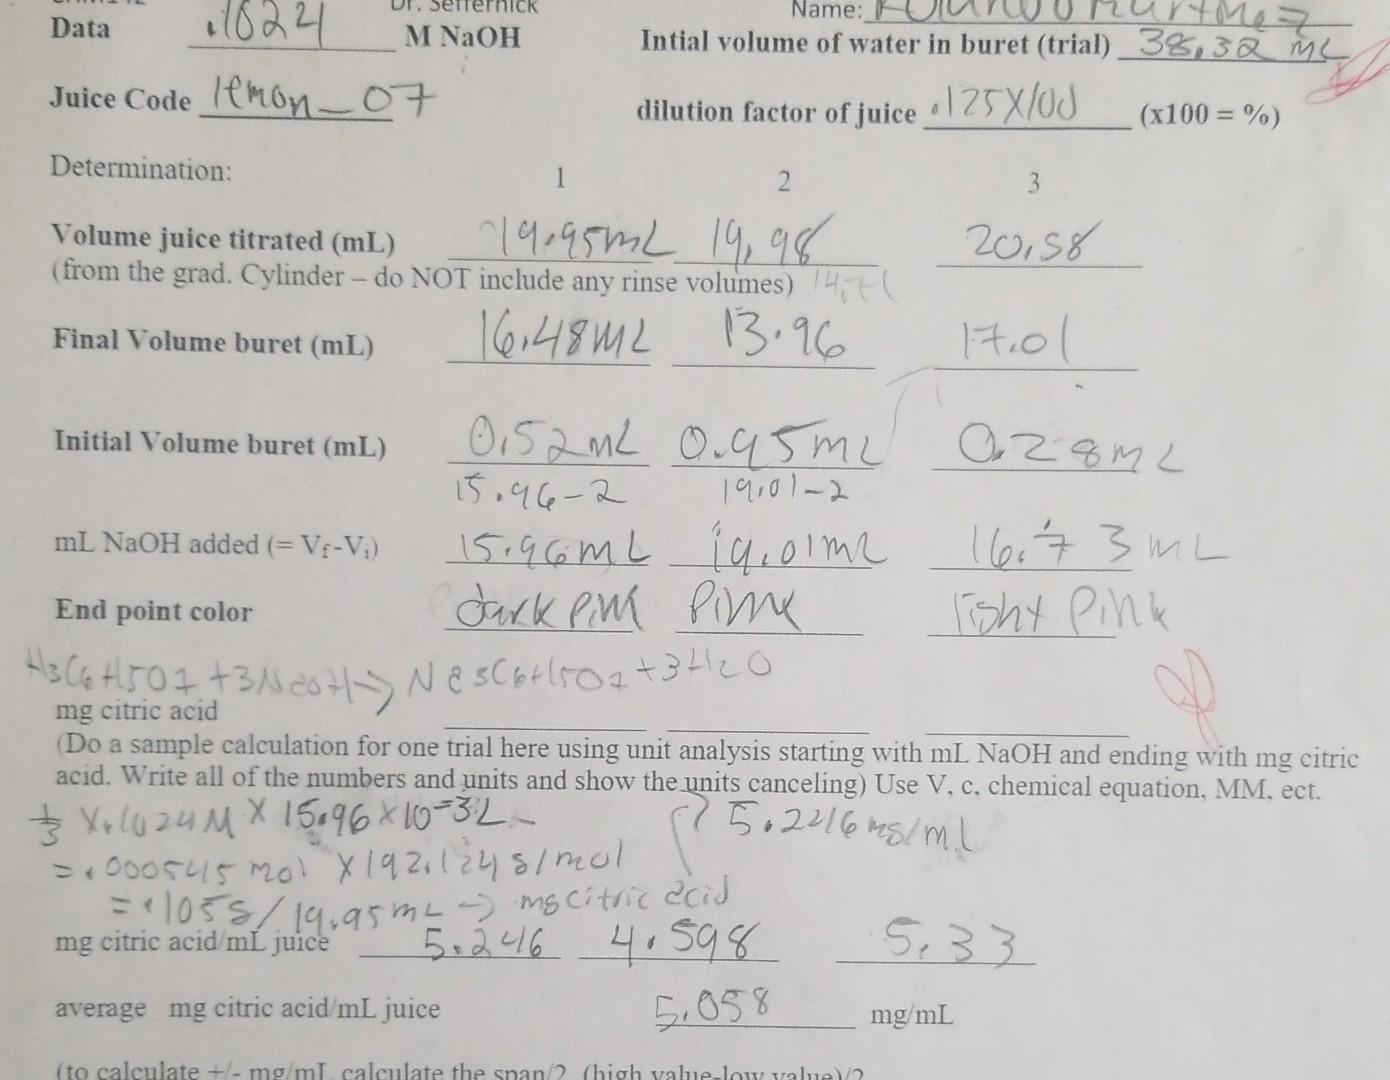 Dr. Seffernick
Name:
Data .1024 M NaOH
Intial volume of water in buret (trial) 38.32 mL
Juice Code lemon_07
dilution factor of juice .125X100 (x100 = %)
Determination: 1 2 3
Volume juice titrated (mL) 19.95mL 19.98 20.58
(from the grad. Cylinder – do NOT include any rinse volumes)
Final Volume buret (mL) 16.48mL 13.96 17.01
Initial Volume buret (mL) 0.52mL 0.95mL 0.28mL
15.96-2 19.01-2
mL NaOH added (= Vf-Vi) 15.96mL 19.01mL 16.73mL
End point color dark pink Pink light Pink
H3C6H5O7 +3NaOH→ Na3C6H5O7+3H2O
mg citric acid
(Do a sample calculation for one trial here using unit analysis starting with mL NaOH and ending with mg citric
acid. Write all of the numbers and units and show the units canceling) Use V, c, chemical equation, MM, ect.
1/3 X.1024M X 15.96X10-3L 5.2216mg/ml
=.000545 mol X192.124g/mol
=.105g/19.95mL → mg citric acid
mg citric acid/mL juice 5.246 4.598 5.33
average mg citric acid/mL juice 5.058 mg/mL
(to calculate +/- mg/mL calculate the span/2 (high value-low value)/2